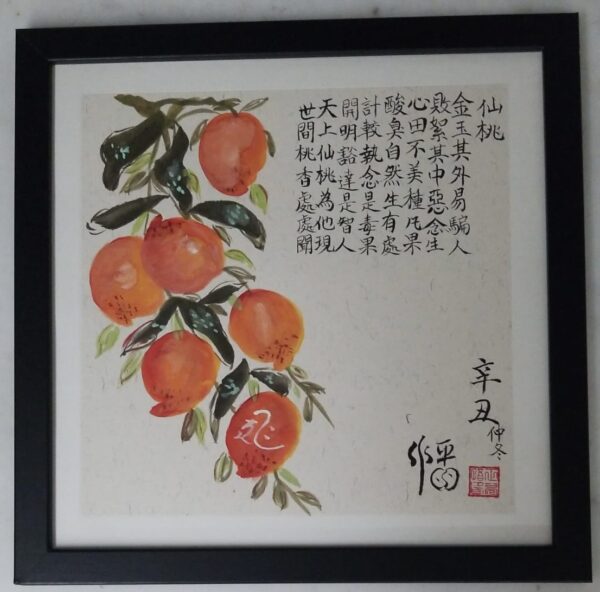 仙桃
金玉其外易騙人
毀絮其中惡念生
心田不美種凡果
酸臭自然生有處
計較執念是毒果
開明豁達是智人
天上仙桃為他現
世間桃香處處聞
辛丑
仲冬